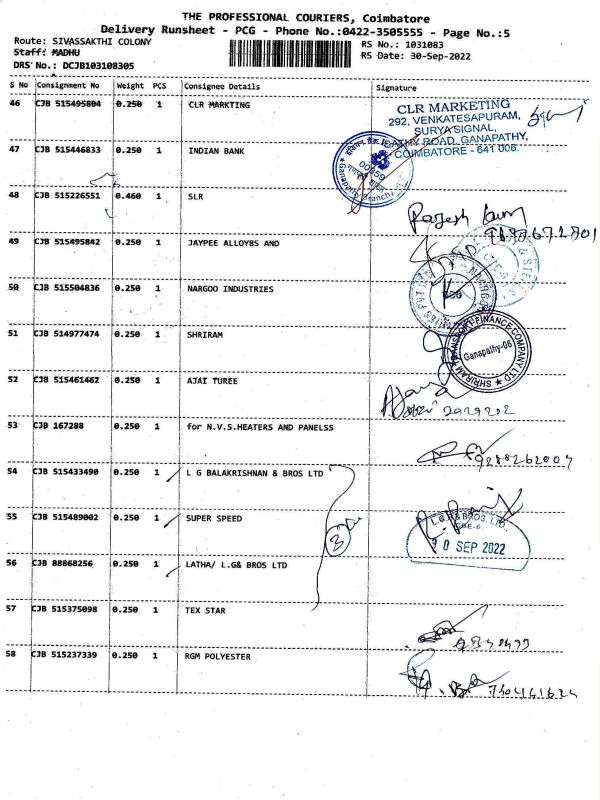 THE PROFESSIONAL COURIERS, Coimbatore
Delivery Runsheet - PCG - Phone No.:0422-3505555 - Page No.:5
Route: SIVASSAKTHI COLONY
RS No.: 1031083
Staff: MADHU
RS Date: 30-Sep-2022
DRS No.: DCJB103108305
S No Consignment No Weight PCS Consignee Details Signature
46 CJB 515495804 0.250 1 CLR MARKTING
CLR MARKETING
292, VENKATESAPURAM,
SURYA SIGNAL,
SATHY ROAD, GANAPATHY,
COIMBATORE - 641 006.
47 CJB 515446833 0.250 1 INDIAN BANK
00659
Ganapathy Branch
48 CJB 515226551 0.460 1 SLR
Rajesh
49 CJB 515495842 0.250 1 JAYPEE ALLOYBS AND
50 CJB 515504836 0.250 1 NARGOO INDUSTRIES
51 CJB 514977474 0.250 1 SHRIRAM
SHRIRAM TRANSPORT FINANCE COMPANY LTD
Ganapathy-06
52 CJB 515461462 0.250 1 AJAI TUREE
53 CJB 167288 0.250 1 for N.V.S.HEATERS AND PANELSS
9288262007
54 CJB 515433490 0.250 1 L G BALAKRISHNAN & BROS LTD
55 CJB 515489002 0.250 1 SUPER SPEED
3
L.G.B & BROS. LTD.
CBE-6
30 SEP 2022
56 CJB 88868256 0.250 1 LATHA/ L.G& BROS LTD
57 CJB 515375098 0.250 1 TEX STAR
58 CJB 515237339 0.250 1 RGM POLYESTER